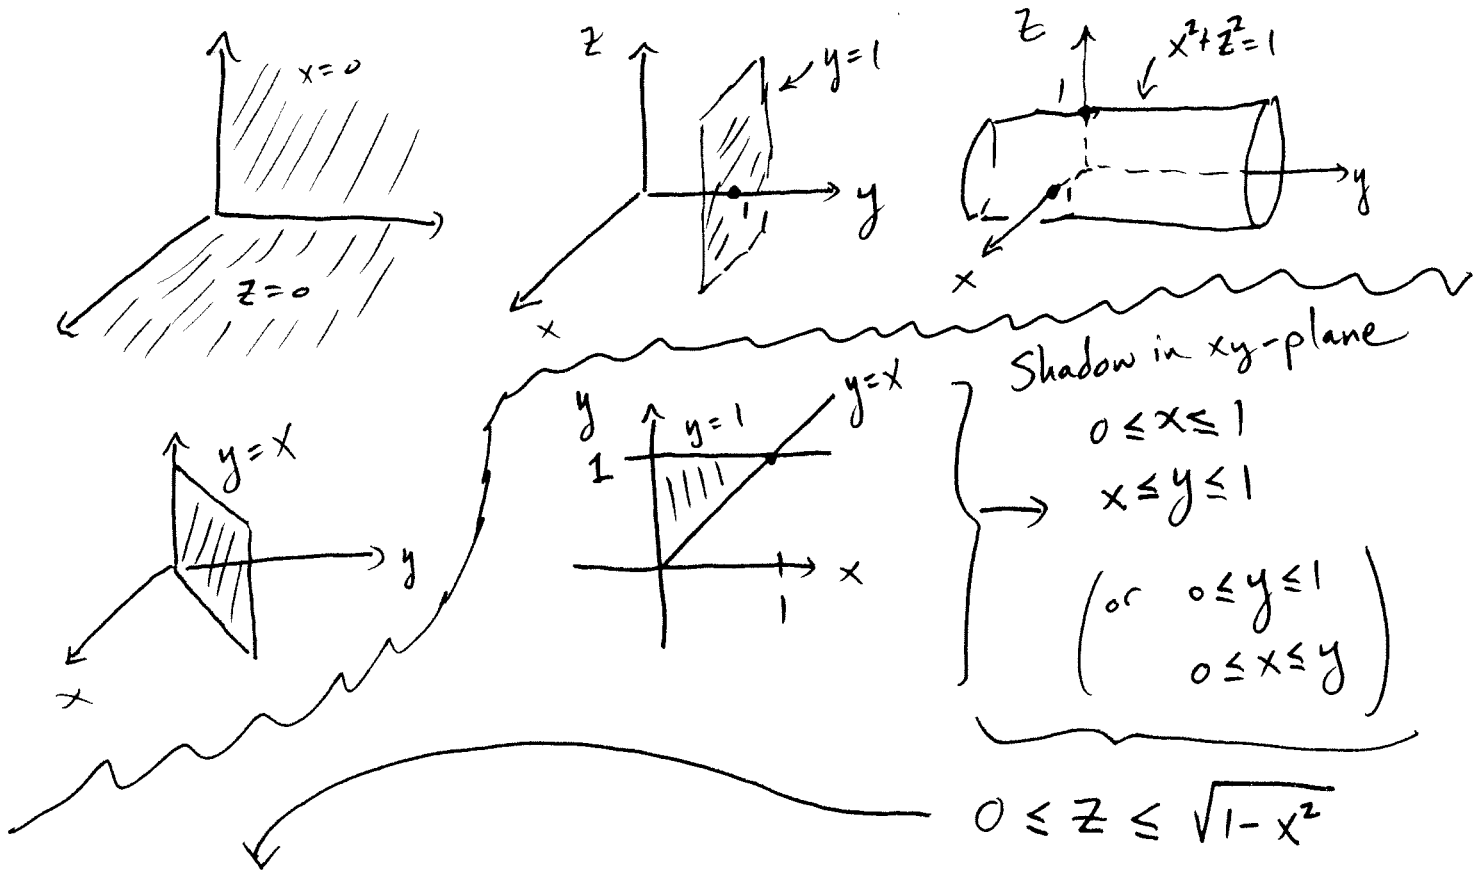 x=0
z=0
z
y=1
1
y
x
z
x²+z²=1
1
1
y
x
y=x
y
x
y
y=1
y=x
1
x
1
Shadow in xy-plane
0≤x≤1
x≤y≤1
(or 0≤y≤1
0≤x≤y)
0≤z≤√1-x²